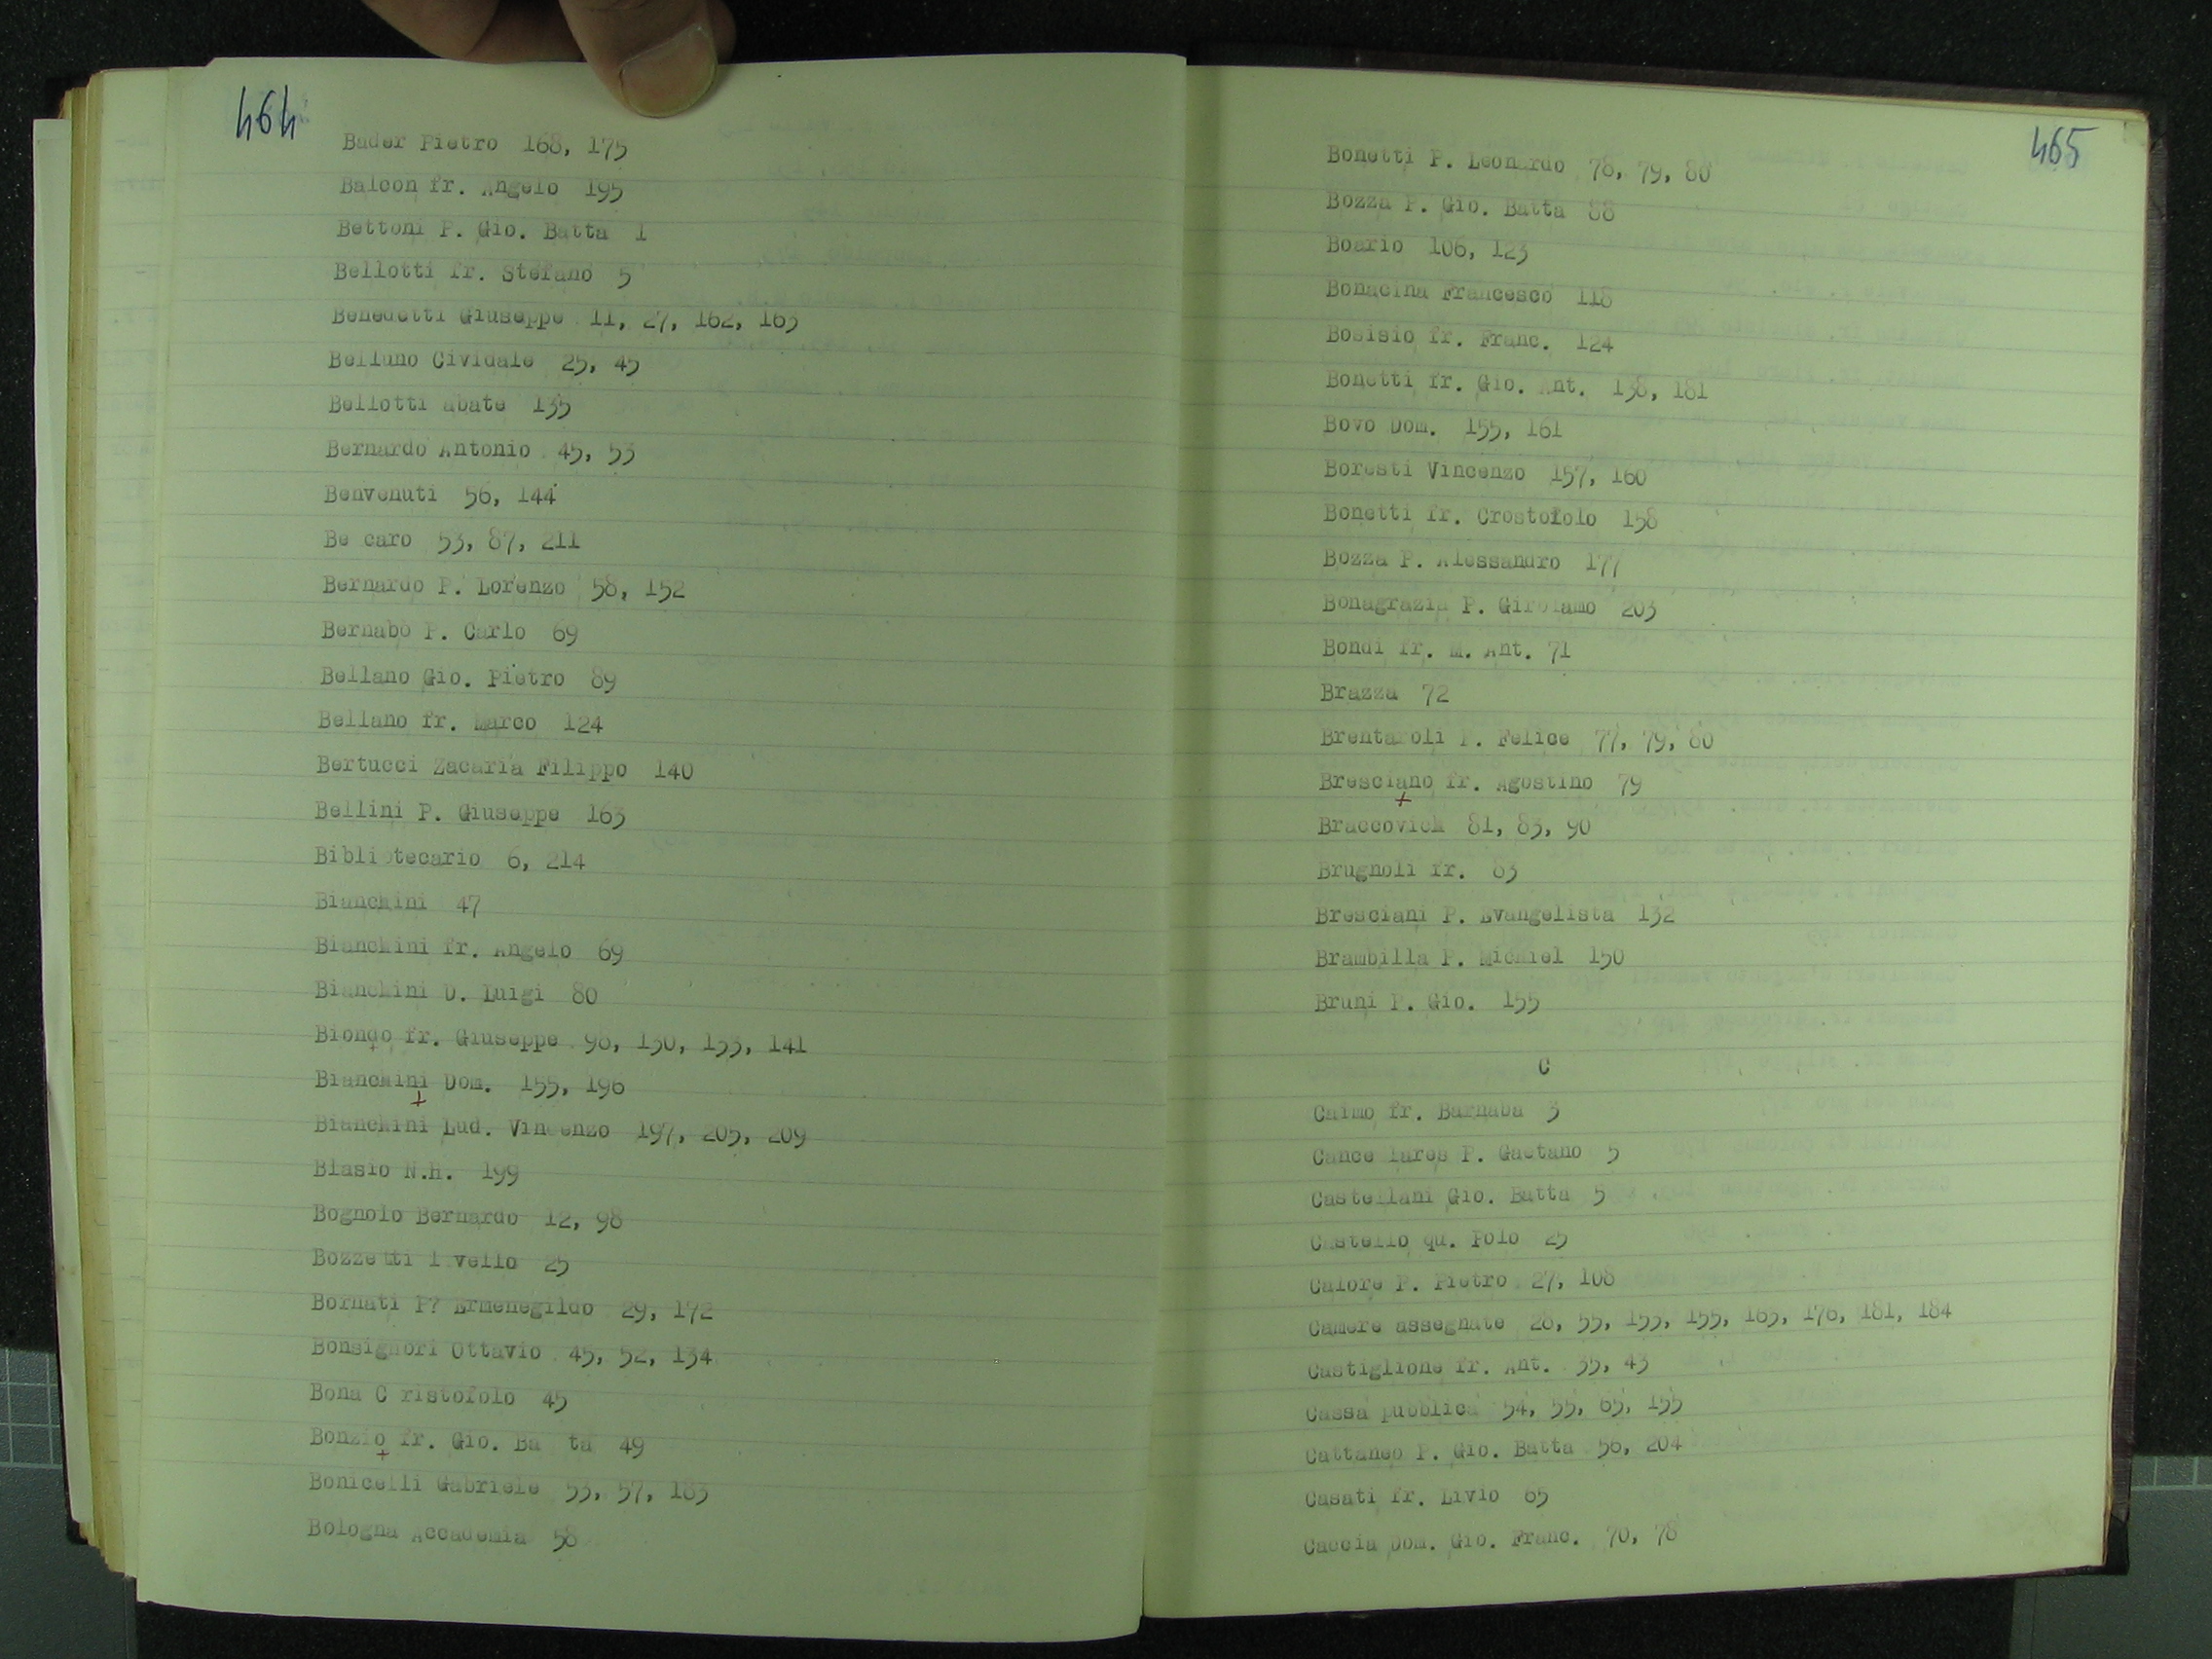 464
Bader Pietro 168, 175
Balcon fr. Angelo 195
Bettoni P. Gio. Batta 1
Bellotti fr. Stefano 5
Benedetti Giuseppe 11, 27, 162, 163
Belluno Cividale 25, 45
Bellotti abate 135
Bernardo Antonio 45, 53
Benvenuti 56, 144
Be caro 53, 87, 211
Bernardo P. Lorenzo 58, 152
Bernabò P. Carlo 69
Bellano Gio. Pietro 89
Bellano fr. Marco 124
Bertucci Zacaria Filippo 140
Bellini P. Giuseppe 163
Bibliotecario 6, 214
Bianchini 47
Bianchini fr. Angelo 69
Bianchini D. Luigi 80
Biondo fr. Giuseppe 98, 130, 133, 141
Bianchini Dom. 155, 196
+
Bianchini Lud. Vincenzo 197, 205, 209
Blasio N.H. 199
Bognolo Bernardo 12, 98
Bozzetti l vello 25
Bornati P? Ermenegildo 29, 172
Bonsignori Ottavio 45, 52, 134
Bona C ristofolo 45
Bonzio fr. Gio. Ba ta 49
+
Bonicelli Gabriele 53, 57, 183
Bologna Accademia 58
465
Bonetti P. Leonardo 78, 79, 80
Bozza P. Gio. Batta 88
Boario 106, 123
Bonacina Francesco 118
Bosisio fr. Franc. 124
Bonetti fr. Gio. Ant. 138, 181
Bovo Dom. 155, 161
Boresti Vincenzo 157, 160
Bonetti fr. Crostofolo 158
Bozza P. Alessandro 177
Bonagrazia P. Girolamo 203
Bondi fr. M. Ant. 71
Brazza 72
Brentaroli P. Felice 77, 79, 80
Bresciano fr. Agostino 79
+
Braccovich 81, 83, 90
Brugnoli fr. 83
Bresciani P. Evangelista 132
Brambilla P. Michiel 150
Bruni P. Gio. 155
C
Caimo fr. Barnaba 3
Cance lares P. Gaetano 5
Castellani Gio. Batta 5
Castello qu. Polo 25
Calore P. Pietro 27, 108
Camere assegnate 28, 55, 153, 155, 163, 176, 181, 184
Castiglione fr. Ant. 35, 43
Cassa pubblica 54, 55, 65, 155
Cattaneo P. Gio. Batta 56, 204
Casati fr. Livio 65
Caccia Dom. Gio. Franc. 70, 78